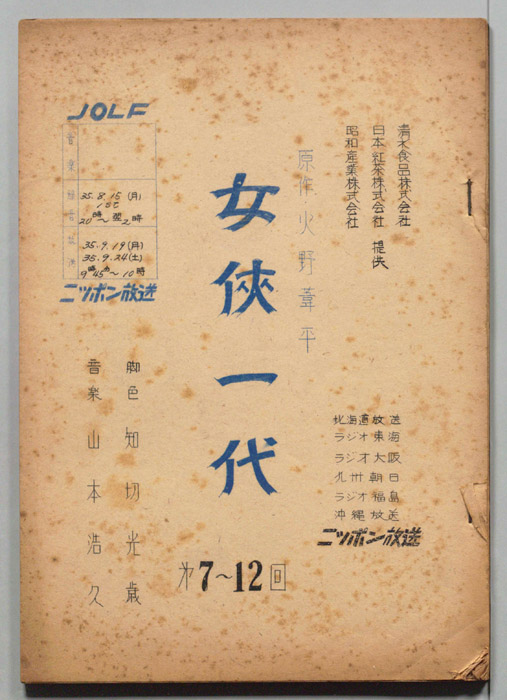 清水食品株式会社
日本紅茶株式会社 提供
昭和産業株式会社
原作 火野葦平
女俠一代
JOLF
音楽
録音
35.8.15(月)
1st
20時~翌2時
放送
35.9.19(月)
35.9.24(土)
9時45分~10時
ニッポン放送
脚色 知切光歳
音楽 山本浩久
北海道放送
ラジオ東海
ラジオ大阪
九州朝日
ラジオ福島
沖縄放送
ニッポン放送
才7~12回